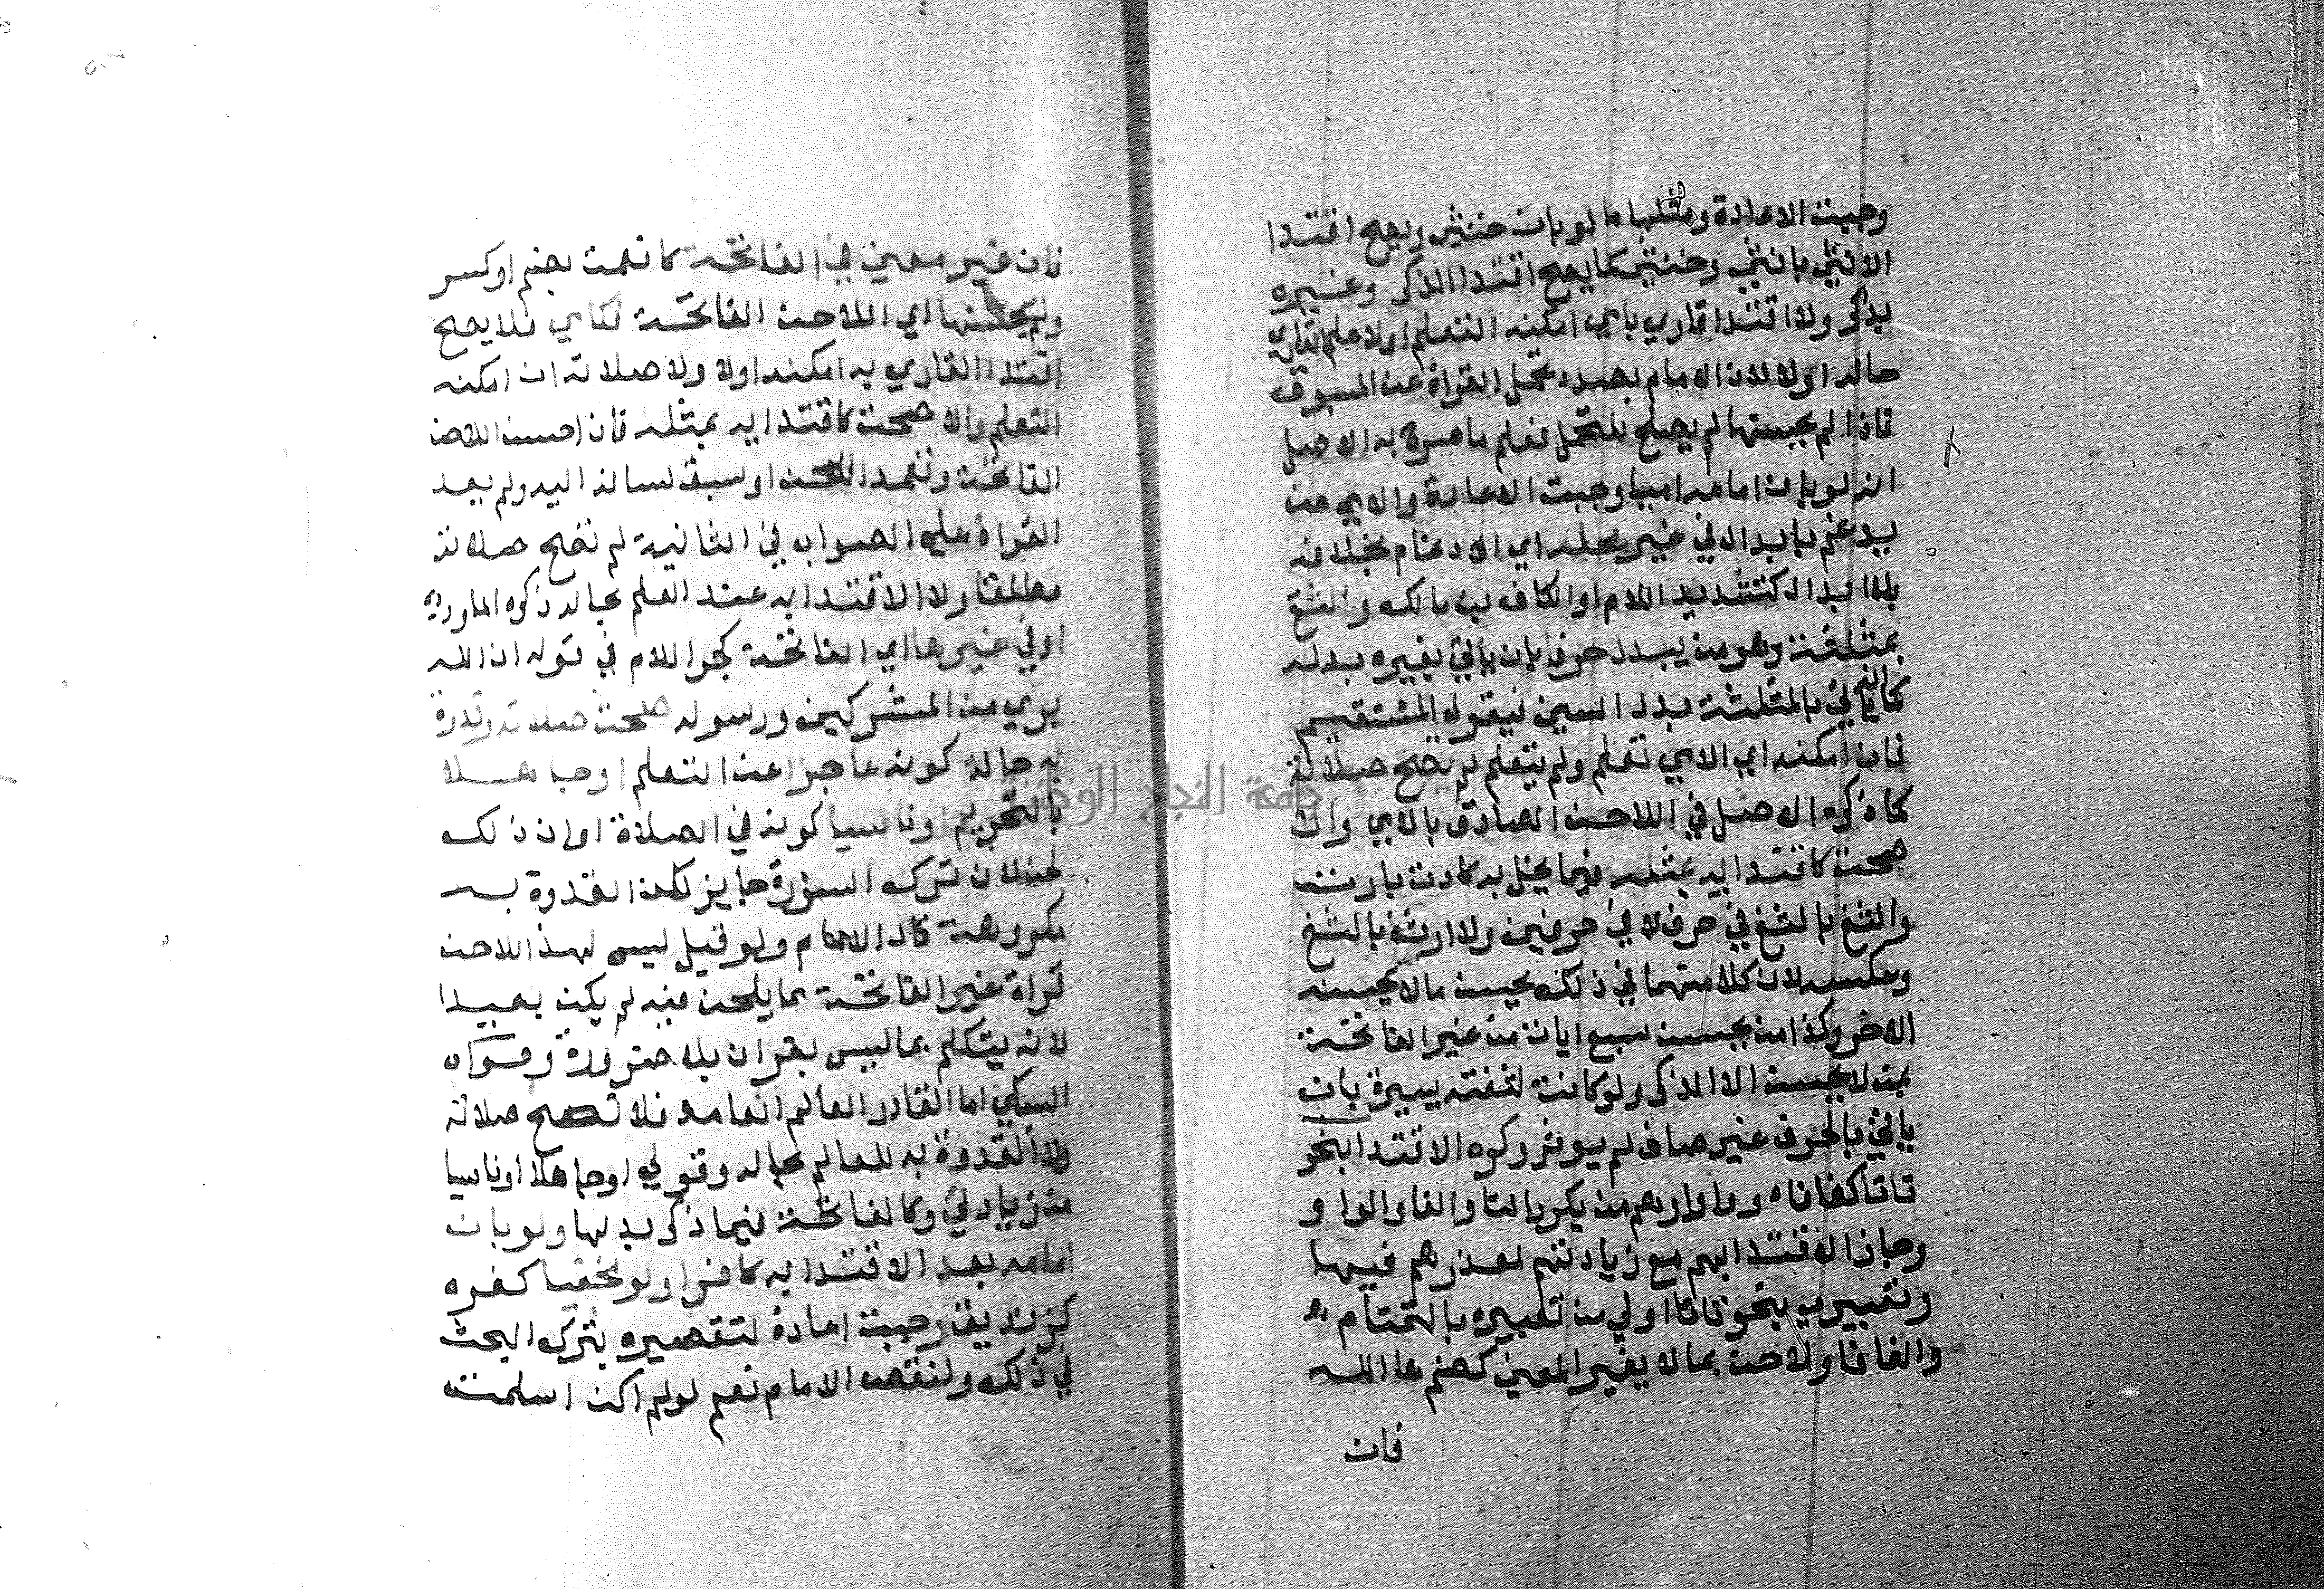 وجبت الاعادة ومثلها ما لو بان خنثى ويصح اقتدا
الانثى بانثى وخنثى كما يصح اقتدا الذكر وغيره
بذكر ولا اقتدا قاري بامي امكنه التعلم او لا علم القاري
حاله او لا لان الامام بصدد تحمل القراة عن المسبوق
فاذا لم يحسنها لم يصلح للتحمل فعلم ما صرح به الاصل
انه لو بان امامه اميا وجبت الاعادة والامي من
يدغم بابدال في غير محله اي الادغام بخلافه
بلا ابدال كتشديد اللام او الكاف من مالك والثغ
بمثلثة وهو من يبدل حرفا بان ياتي بغيره بدله
كان ياتي بالمثلثة بدل السين فيقول المثتقيم
فان امكنه اي الامي تعلم ولم يتعلم لم تصح صلاته
كما ذكره الاصل في اللاحن الصادق بالامي والا
صحت كاقتدايه بمثله فيما يخل به كارت بارت
والثغ بالثغ في حرف لا في حرفين ولا ارت بالثغ
وعكسه لان كلا منهما في ذلك يحسن ما لا يحسنه
الاخر وكذا من يحسن سبع ايات من غير الفاتحة
بمن لا يحسن الا الذكر ولو كانت لثغته يسيرة بان
ياتي بالحرف غير صاف لم يوثر وكره الاقتدا بنحو
تاتا كفافاه وواوا وهم من يكرر التا والفا والواو
وجاز الاقتدا بهم مع زيادتهم لعذرهم فيها
وتعبيري بنحو تاتا اولى من تعبيره بالتمتام
والفافا ولاحن بما لا يغير المعنى كضم ها الله
فان
فان غير معنى في الفاتحة كانعمت بضم او كسر
ولم يحسنها اي اللاحن الفاتحة فكامي فلا يصح
اقتدا القاري به امكنه او لا ولا صلاته ان امكنه
التعلم والا صحت كاقتدايه بمثله فان احسن اللاحن
الفاتحة وتعمد اللحن او سبق لسانه اليه ولم يعد
القراة على الصواب في الثانية لم تصح صلاته
مطلقا ولا الاقتدا به عند العلم بحاله ذكره الماوردي
او في غيرها اي الفاتحة كجر اللام في قوله ان الله
بري من المشركين ورسوله صحت صلاته وقدوة
به حالة كونه عاجزا عن التعلم او جاهلا
بالتحريم او ناسيا كونه في الصلاة او ان ذلك
لحن لان ترك السورة جايز لكن القدوة به
مكروهة قال الامام ولو قيل ليس لهذا اللاحن
قراة غير الفاتحة مما يلحن فيه لم يكن بعيدا
لانه يتكلم بما ليس بقران بلا ضرورة وقواه
السبكي اما القادر العالم العامد فلا تصح صلاته
ولا القدوة به للعالم بحاله وقولي او جاهلا او ناسيا
من زيادتي وكالفاتحة فيما ذكر بدلها ولو بان
امامه بعد الاقتدا به كافرا ولو مخفيا كفره
كزنديق وجبت اعادة لتقصيره بترك البحث
في ذلك ولنقص الامام نعم لو لم اكن اسلمت
جامعة النجاح الوطنية